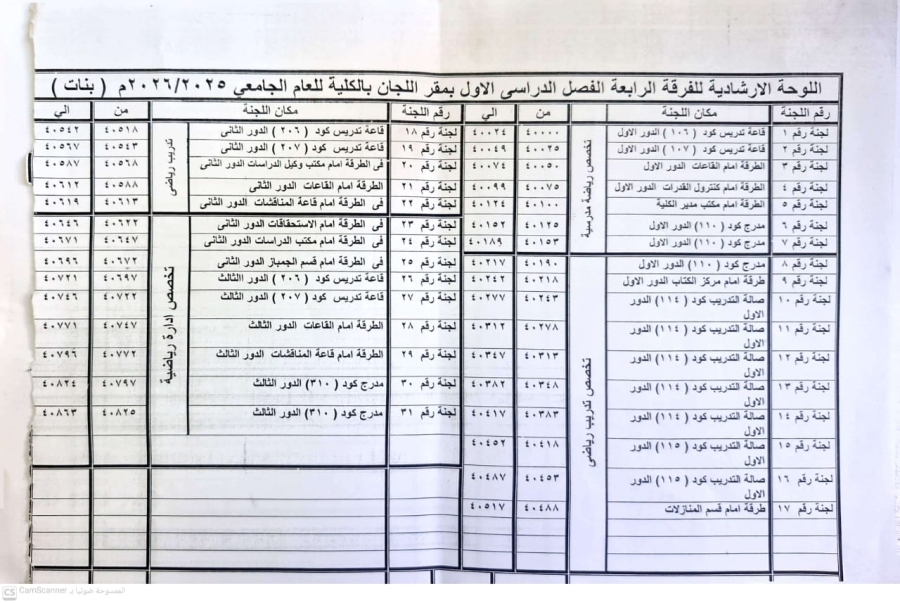 اللوحة الارشادية للفرقة الرابعة الفصل الدراسي الاول بمقر اللجان بالكلية للعام الجامعي ٢٠٢٦/٢٠٢٥م ( بنات )
رقم اللجنة مكان اللجنة من الي
تخصص رياضة مدرسية
لجنة رقم ١ قاعة تدريس كود ( ١٠٦ ) الدور الاول ٤٠٠٠٠ ٤٠٠٢٤
لجنة رقم ٢ قاعة تدريس كود ( ١٠٧ ) الدور الاول ٤٠٠٢٥ ٤٠٠٤٩
لجنة رقم ٣ الطرقة امام القاعات الدور الاول ٤٠٠٥٠ ٤٠٠٧٤
لجنة رقم ٤ الطرقة امام كنترول القدرات الدور الاول ٤٠٠٧٥ ٤٠٠٩٩
لجنة رقم ٥ الطرقة امام مكتب مدير الكلية ٤٠١٠٠ ٤٠١٢٤
لجنة رقم ٦ مدرج كود (١١٠) الدور الاول ٤٠١٢٥ ٤٠١٥٢
لجنة رقم ٧ مدرج كود (١١٠) الدور الاول ٤٠١٥٣ ٤٠١٨٩
تخصص تدريب رياضى
لجنة رقم ٨ مدرج كود (١١٠) الدور الاول ٤٠١٩٠ ٤٠٢١٧
لجنة رقم ٩ طرقة امام مركز الكتاب الدور الاول ٤٠٢١٨ ٤٠٢٤٢
لجنة رقم ١٠ صالة التدريب كود (١١٤) الدور ٤٠٢٤٣ ٤٠٢٧٧
الاول
لجنة رقم ١١ صالة التدريب كود (١١٤) الدور ٤٠٢٧٨ ٤٠٣١٢
الاول
لجنة رقم ١٢ صالة التدريب كود (١١٤) الدور ٤٠٣١٣ ٤٠٣٤٧
الاول
لجنة رقم ١٣ صالة التدريب كود (١١٤) الدور ٤٠٣٤٨ ٤٠٣٨٢
الاول
لجنة رقم ١٤ صالة التدريب كود (١١٤) الدور ٤٠٣٨٣ ٤٠٤١٧
الاول
لجنة رقم ١٥ صالة التدريب كود (١١٥) الدور ٤٠٤١٨ ٤٠٤٥٢
الاول
لجنة رقم ١٦ صالة التدريب كود (١١٥) الدور ٤٠٤٥٣ ٤٠٤٨٧
الاول
لجنة رقم ١٧ طرقة امام قسم المنازلات ٤٠٤٨٨ ٤٠٥١٧
رقم اللجنة مكان اللجنة من الي
تدريب رياضى
لجنة رقم ١٨ قاعة تدريس كود ( ٢٠٦ ) الدور الثانى ٤٠٥١٨ ٤٠٥٤٢
لجنة رقم ١٩ قاعة تدريس كود ( ٢٠٧ ) الدور الثانى ٤٠٥٤٣ ٤٠٥٦٧
لجنة رقم ٢٠ فى الطرقة امام مكتب وكيل الدراسات الدور الثانى ٤٠٥٦٨ ٤٠٥٨٧
لجنة رقم ٢١ الطرقة امام القاعات الدور الثانى ٤٠٥٨٨ ٤٠٦١٢
لجنة رقم ٢٢ فى الطرقة امام قاعة المناقشات الدور الثانى ٤٠٦١٣ ٤٠٦١٩
تخصص ادارة رياضية
لجنة رقم ٢٣ فى الطرقة امام الاستحقاقات الدور الثانى ٤٠٦٢٢ ٤٠٦٤٦
لجنة رقم ٢٤ فى الطرقة امام مكتب الدراسات الدور الثانى ٤٠٦٤٧ ٤٠٦٧١
لجنة رقم ٢٥ فى الطرقة امام قسم الجمباز الدور الثانى ٤٠٦٧٢ ٤٠٦٩٦
لجنة رقم ٢٦ قاعة تدريس كود ( ٢٠٦ ) الدور الثالث ٤٠٦٩٧ ٤٠٧٢١
لجنة رقم ٢٧ قاعة تدريس كود ( ٢٠٧ ) الدور الثالث ٤٠٧٢٢ ٤٠٧٤٦
لجنة رقم ٢٨ الطرقة امام القاعات الدور الثالث ٤٠٧٤٧ ٤٠٧٧١
لجنة رقم ٢٩ الطرقة امام قاعة المناقشات الدور الثالث ٤٠٧٧٢ ٤٠٧٩٦
لجنة رقم ٣٠ مدرج كود (٣١٠) الدور الثالث ٤٠٧٩٧ ٤٠٨٢٤
لجنة رقم ٣١ مدرج كود (٣١٠) الدور الثالث ٤٠٨٢٥ ٤٠٨٦٣
CS CamScanner الممسوحة ضوئيا بـ